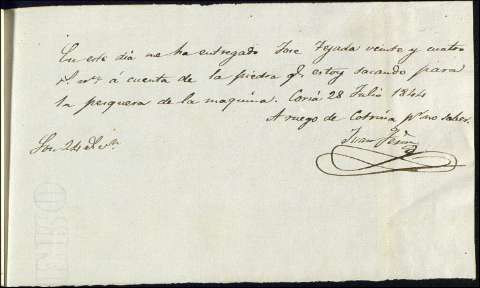 En este dia me ha entregado Jose Tejada veinte y cuatro
r.s v.n á cuenta de la piedra q.e estoy sacando para
la pesquera de la maquina. Coria 28 Julio 1844
A ruego de Cotrina p.r no saber.
Juan
Son 24 r.s v.n